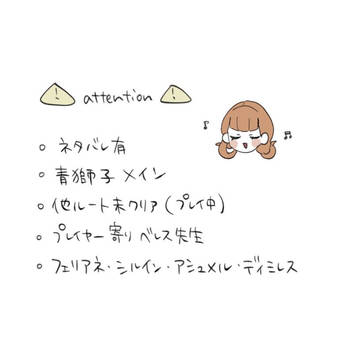 attention
○ ネタバレ有
○ 青獅子メイン
○ 他ルート未クリア(プレイ中)
○ プレイヤー寄りベレス先生
○ フェリアネ・シルイン・アシュメル・ディミレス